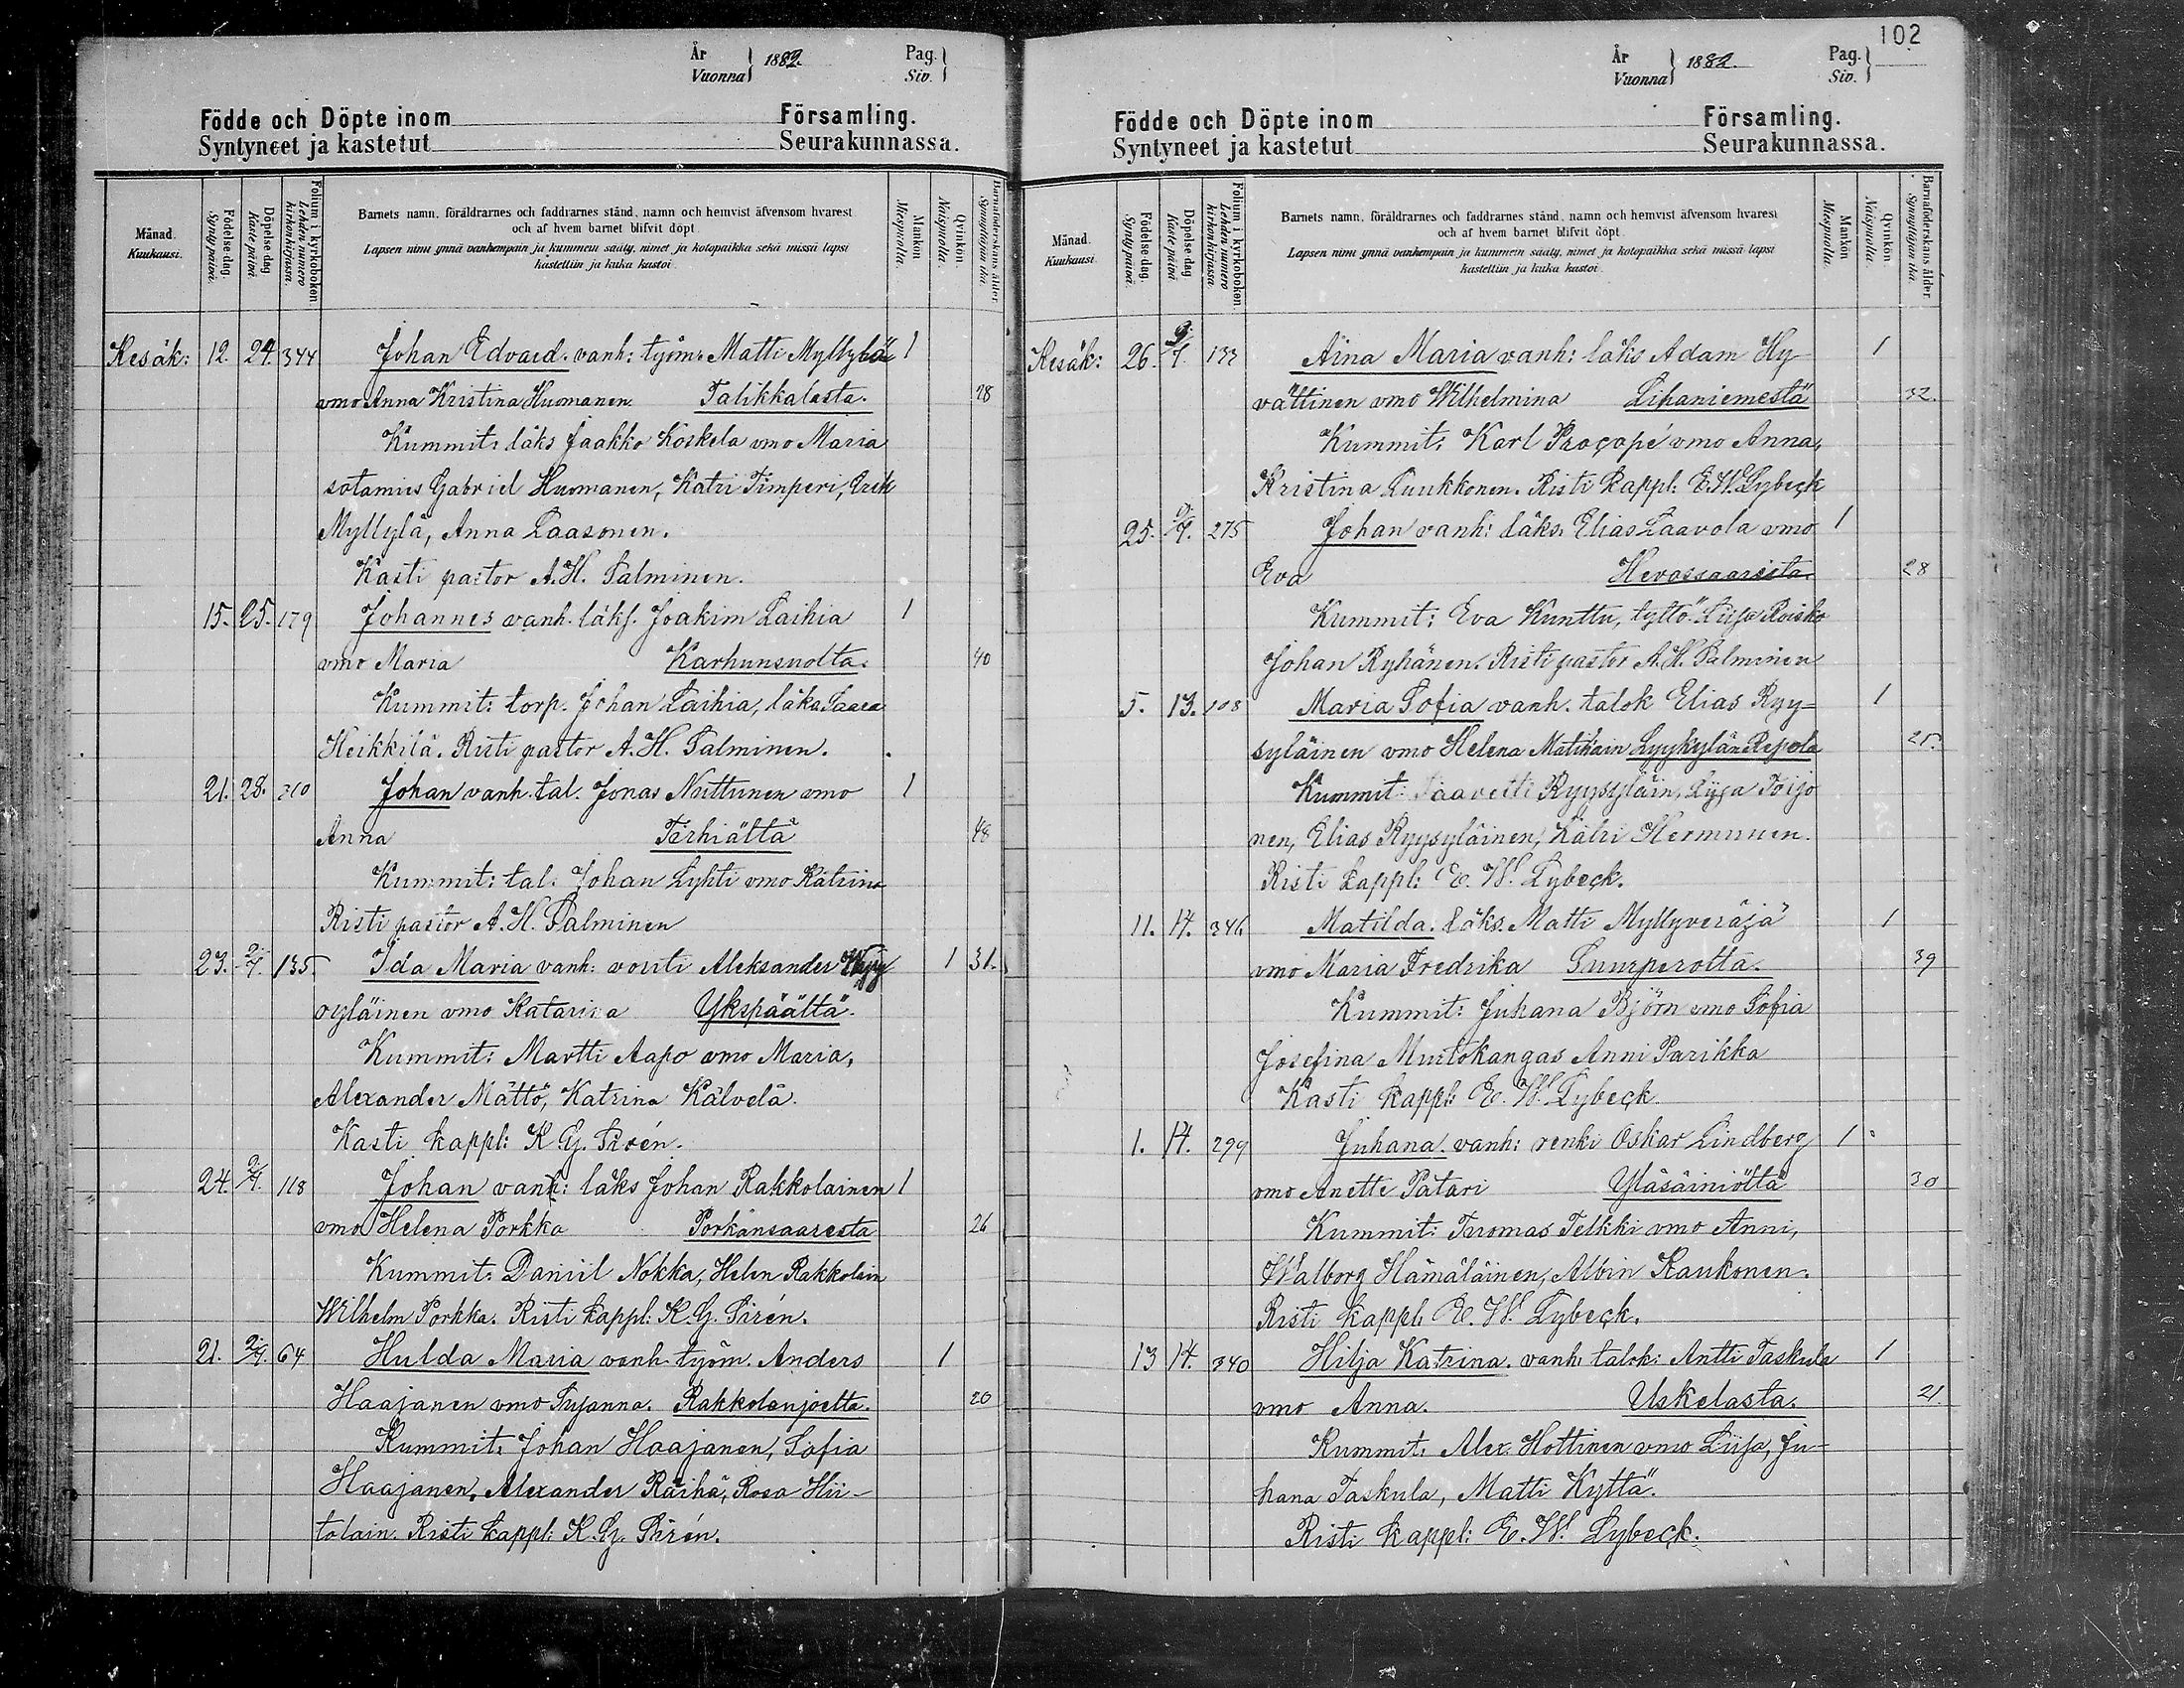 År
Vuonna } 1882.
Pag.
Siv. }
Födde och Döpte inom Församling.
Syntyneet ja kastetut Seurakunnassa.
Månad.
Kuukausi.
Födelse-dag.
Syntypäivä.
Döpelse-dag
Kaste päivä
Folium i kyrkoboken.
Lehden numero
kirkonkirjassa.
Barnets namn, föräldrarnes och faddrarnes stånd, namn och hemvist äfvensom hvarest
och af hvem barnet blifvit döpt.
Lapsen nimi ynnä vanhempain ja kummein sääty, nimet ja kotopaikka sekä missä lapsi
kastettiin ja kuka kastoi.
Mankön.
Miespuolla.
Qvinkön.
Naispuolla.
Barnaföderskans ålder.
Synnyttäjän ikä.
Kesäk: 12. 24. 344 Johan Edvard. vanh: työm: Matti Myllylä 1
vmo Anna Kristina Huomanen Talikkalasta. 28
Kummit: läks Jaakko Koskela vmo Maria
sotamies Gabriel Huomanen, Katri Timperi, Erik
Myllylä, Anna Laasonen.
Kasti pastor A. H. Salminen.
15. 25. 179 Johannes vanh. läks. Joakim Laihia 1
vmo Maria Karhunsuolta. 40
Kummit: torp. Johan Laihia, läks Saara
Heikkilä. Risti pastor A. H. Salminen.
21. 28. 310 Johan vanh. tal. Jonas Nuttunen vmo 1
Anna Terhiältä 48
Kummit: tal. Johan Lyhti vmo Katrina
Risti pastor A. H. Salminen
23. 2/7. 135. Ida Maria vanh: vouti Aleksander 1 31.
syläinen vmo Katarina Ykspäältä.
Kummit: Martti Aapo vmo Maria,
Alexander Mättö, Katrina Kälvelä.
Kasti kappl: K. G. Sirén.
24. 2/7. 118 Johan vanh: läks Johan Rakkolainen 1
vmo Helena Porkka Porkansaaresta 26
Kummit: Daniil Nokka, Helen Rakkolain
Wilhelm Porkka. Risti kappl: K. G. Sirén.
21. 2/7. 64 Hulda Maria vanh. työm. Anders 1
Haajanen vmo Susanna. Rakkolanjoelta. 20
Kummit: Johan Haajanen, Sofia
Haajanen, Alexander Räihä, Rosa Hii-
tolain. Risti kappl: K. G. Sirén.
102
År
Vuonna } 1882.
Pag.
Siv. }
Födde och Döpte inom Församling.
Syntyneet ja kastetut Seurakunnassa.
Månad.
Kuukausi.
Födelse-dag.
Syntypäivä.
Döpelse-dag
Kaste päivä
Folium i kyrkoboken.
Lehden numero
kirkonkirjassa.
Barnets namn, föräldrarnes och faddrarnes stånd, namn och hemvist äfvensom hvarest
och af hvem barnet blifvit döpt.
Lapsen nimi ynnä vanhempain ja kummein sääty, nimet ja kotopaikka sekä missä lapsi
kastettiin ja kuka kastoi.
Mankön
Miespuolla.
Qvinkön
Naispuolla.
Barnaföderskans ålder.
Synnyttäjän ikä.
Kesäk: 26. 9/7. 133 Aina Maria vanh: läks Adam Hy- 1
vättinen vmo Wilhelmina Lihaniemestä 32.
Kummit: Karl Procopé vmo Anna,
Kristina Luukkonen. Risti kappl: E. W. Lybeck
25. 9/7. 275 Johan vanh: läks. Elias Laavola vmo 1
Eva Hevossaarista. 28
Kummit: Eva Kunttu, tyttö Liisa Roisko
Johan Ryhänen. Risti pastor A. H. Salminen
5. 13. 108 Maria Sofia vanh. talok Elias Ryy- 1
syläinen vmo Helena Matikain Lyykylän Repola 25.
Kummit: Taavetti Ryysyläin, Liisa Toijo
nen, Elias Ryysyläinen, Katri Hermunen.
Risti kappl: E. W. Lybeck.
11. 14. 346 Matilda. läks. Matti Myllyveräjä 1
vmo Maria Fredrika Suurperolta. 39
Kummit: Juhana Björn vmo Sofia
Josefina Mustokangas Anni Parikka
Kasti kappl: E. W. Lybeck
1. 14. 299 Juhana. vanh: renki Oskar Lindberg 1
vmo Anette Pätäri Yläsäiniöltä 30
Kummit: Tuomas Telkki vmo Anni,
Walborg Hämäläinen, Albin Kaukonen.
Risti kappl. E. W. Lybeck.
13 14. 340 Hilja Katrina. vanh: talok: Antti Taskula 1
vmo Anna. Uskelasta. 21.
Kummit: Alex. Hottinen vmo Liisa, Ju-
hana Taskula, Matti Kyttä.
Risti kappl: E. W. Lybeck.